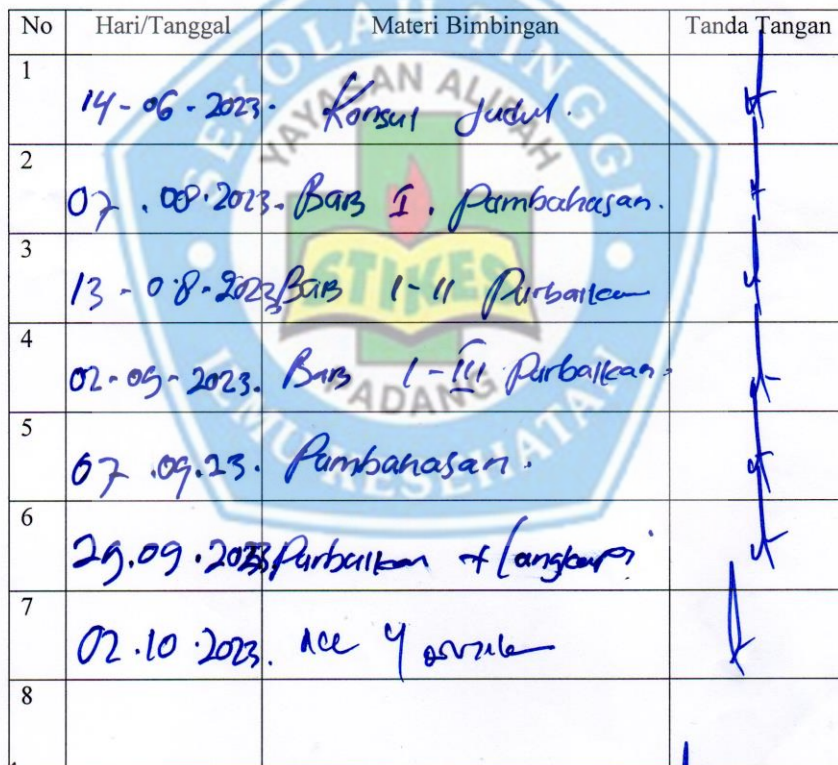 No Hari/Tanggal Materi Bimbingan Tanda Tangan
1 14-06-2023. Konsul Judul.
2 07.08.2023. Bab I. Pembahasan.
3 13-08-2023 Bab I-II Perbaikan
4 02-09-2023. Bab I-III Perbaikan.
5 07.09.23. Pembahasan.
6 29.09.2023 Perbaikan + Lengkapi
7 02.10.2023. Acc
8
SEKOLAH TINGGI
YAYASAN ALIFAH
STIKES
PADANG
ILMU KESEHATAN